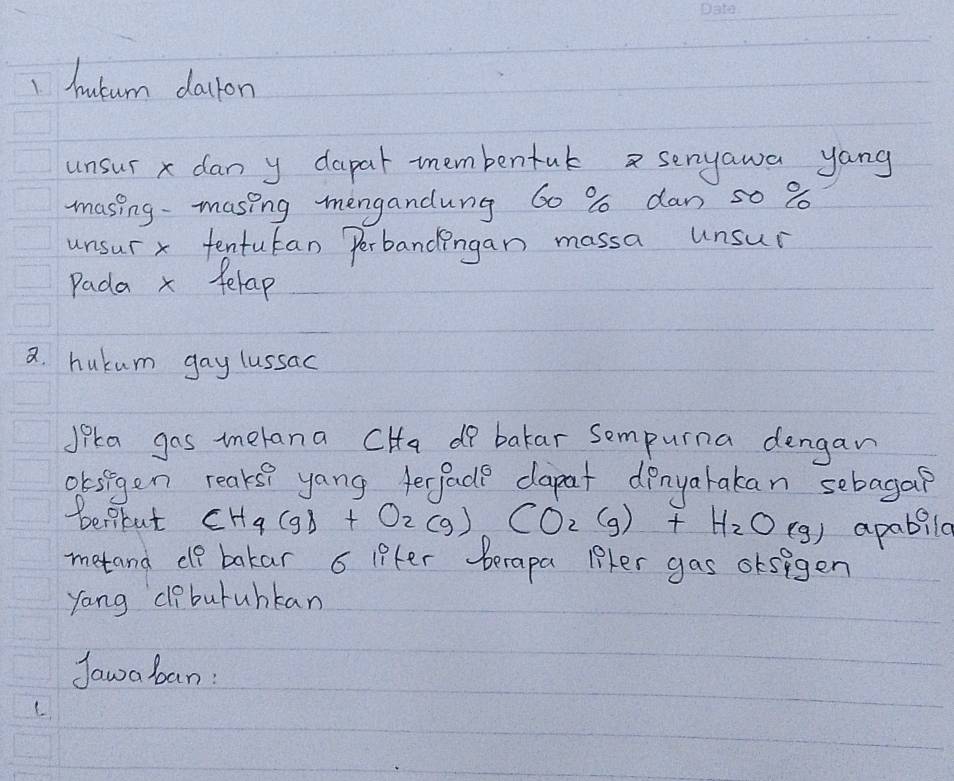 Date
1. hukum dalton
unsur x dan y dapat membentuk 2 senyawa yang
masing- masing mengandung 60 % dan 50 %
unsur x tentukan perbandingan massa unsur
Pada x tetap
2. hukum gay lussac
Jika gas metana CH4 di bakar sempurna dengan
oksigen reaksi yang terjadi dapat dinyatakan sebagai
berikut CH4 (g) + O2 (g) CO2 (g) + H2O (g) apabila
metana di bakar 6 liter berapa liter gas oksigen
yang dibutuhkan
Jawaban:
1.